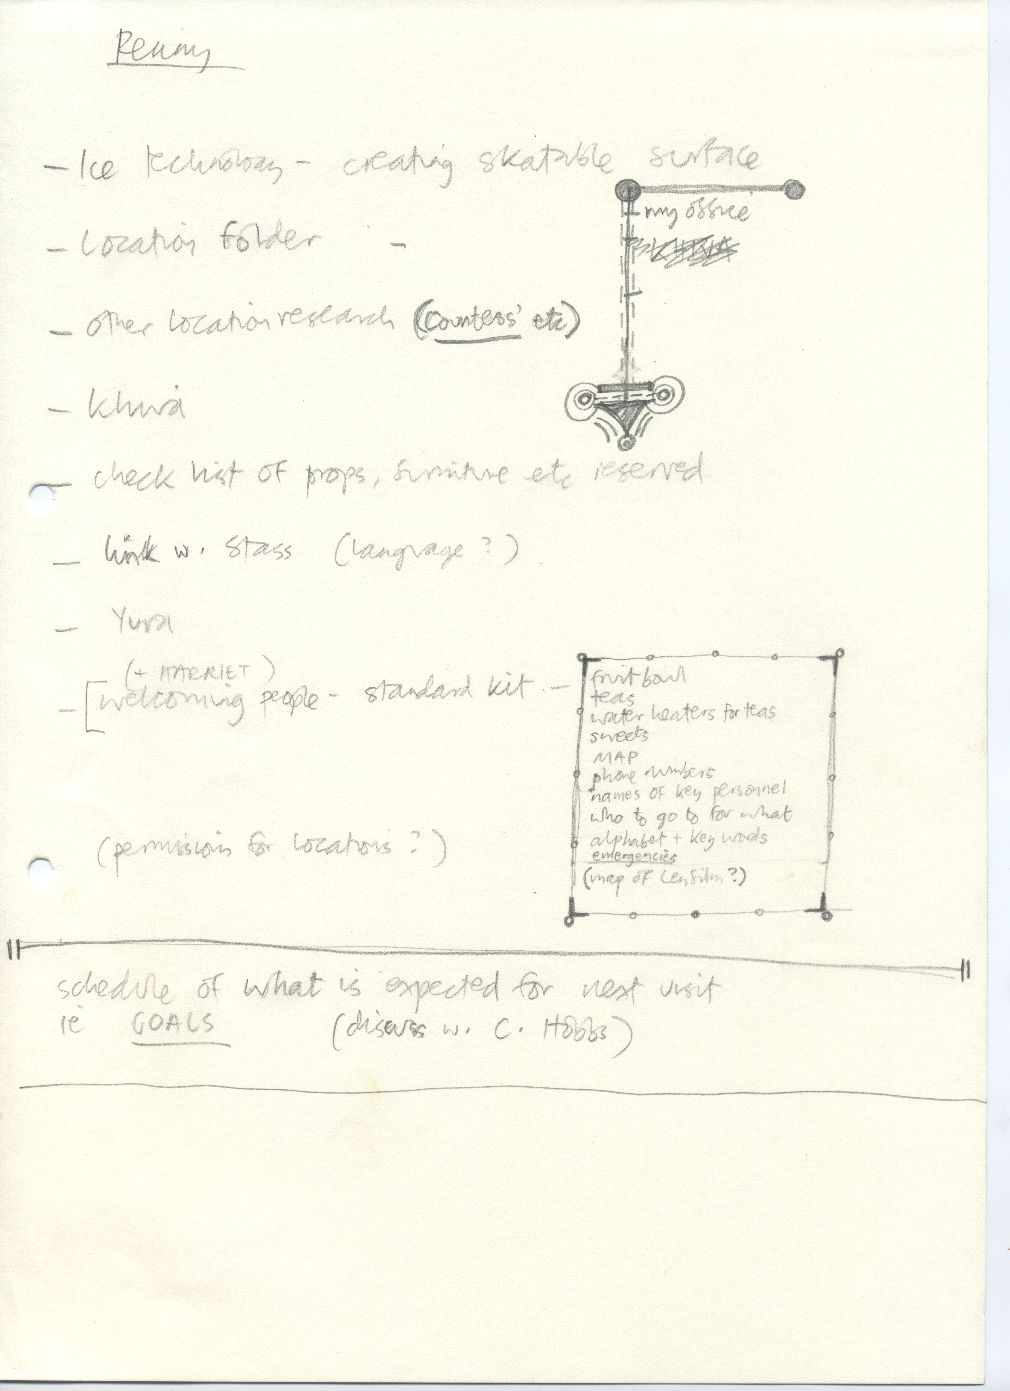 - Ice technology - creating skatable surface
- my office
- Location folder -
- other location research (Countess' etc)
- Khiva
- check list of props, furniture etc reserved
- link w. Stass (language?)
- Yura
(+ HARRIET)
- [welcoming people - standard kit -
fruit bowl
teas
water heaters for teas
sweets
MAP
phone numbers
names of key personnel
who to go to for what
alphabet + key words
emergencies
(map of Lenfilm?)
(permission for locations?)
schedule of what is expected for next visit
ie GOALS (discuss w. C. Hobbs)